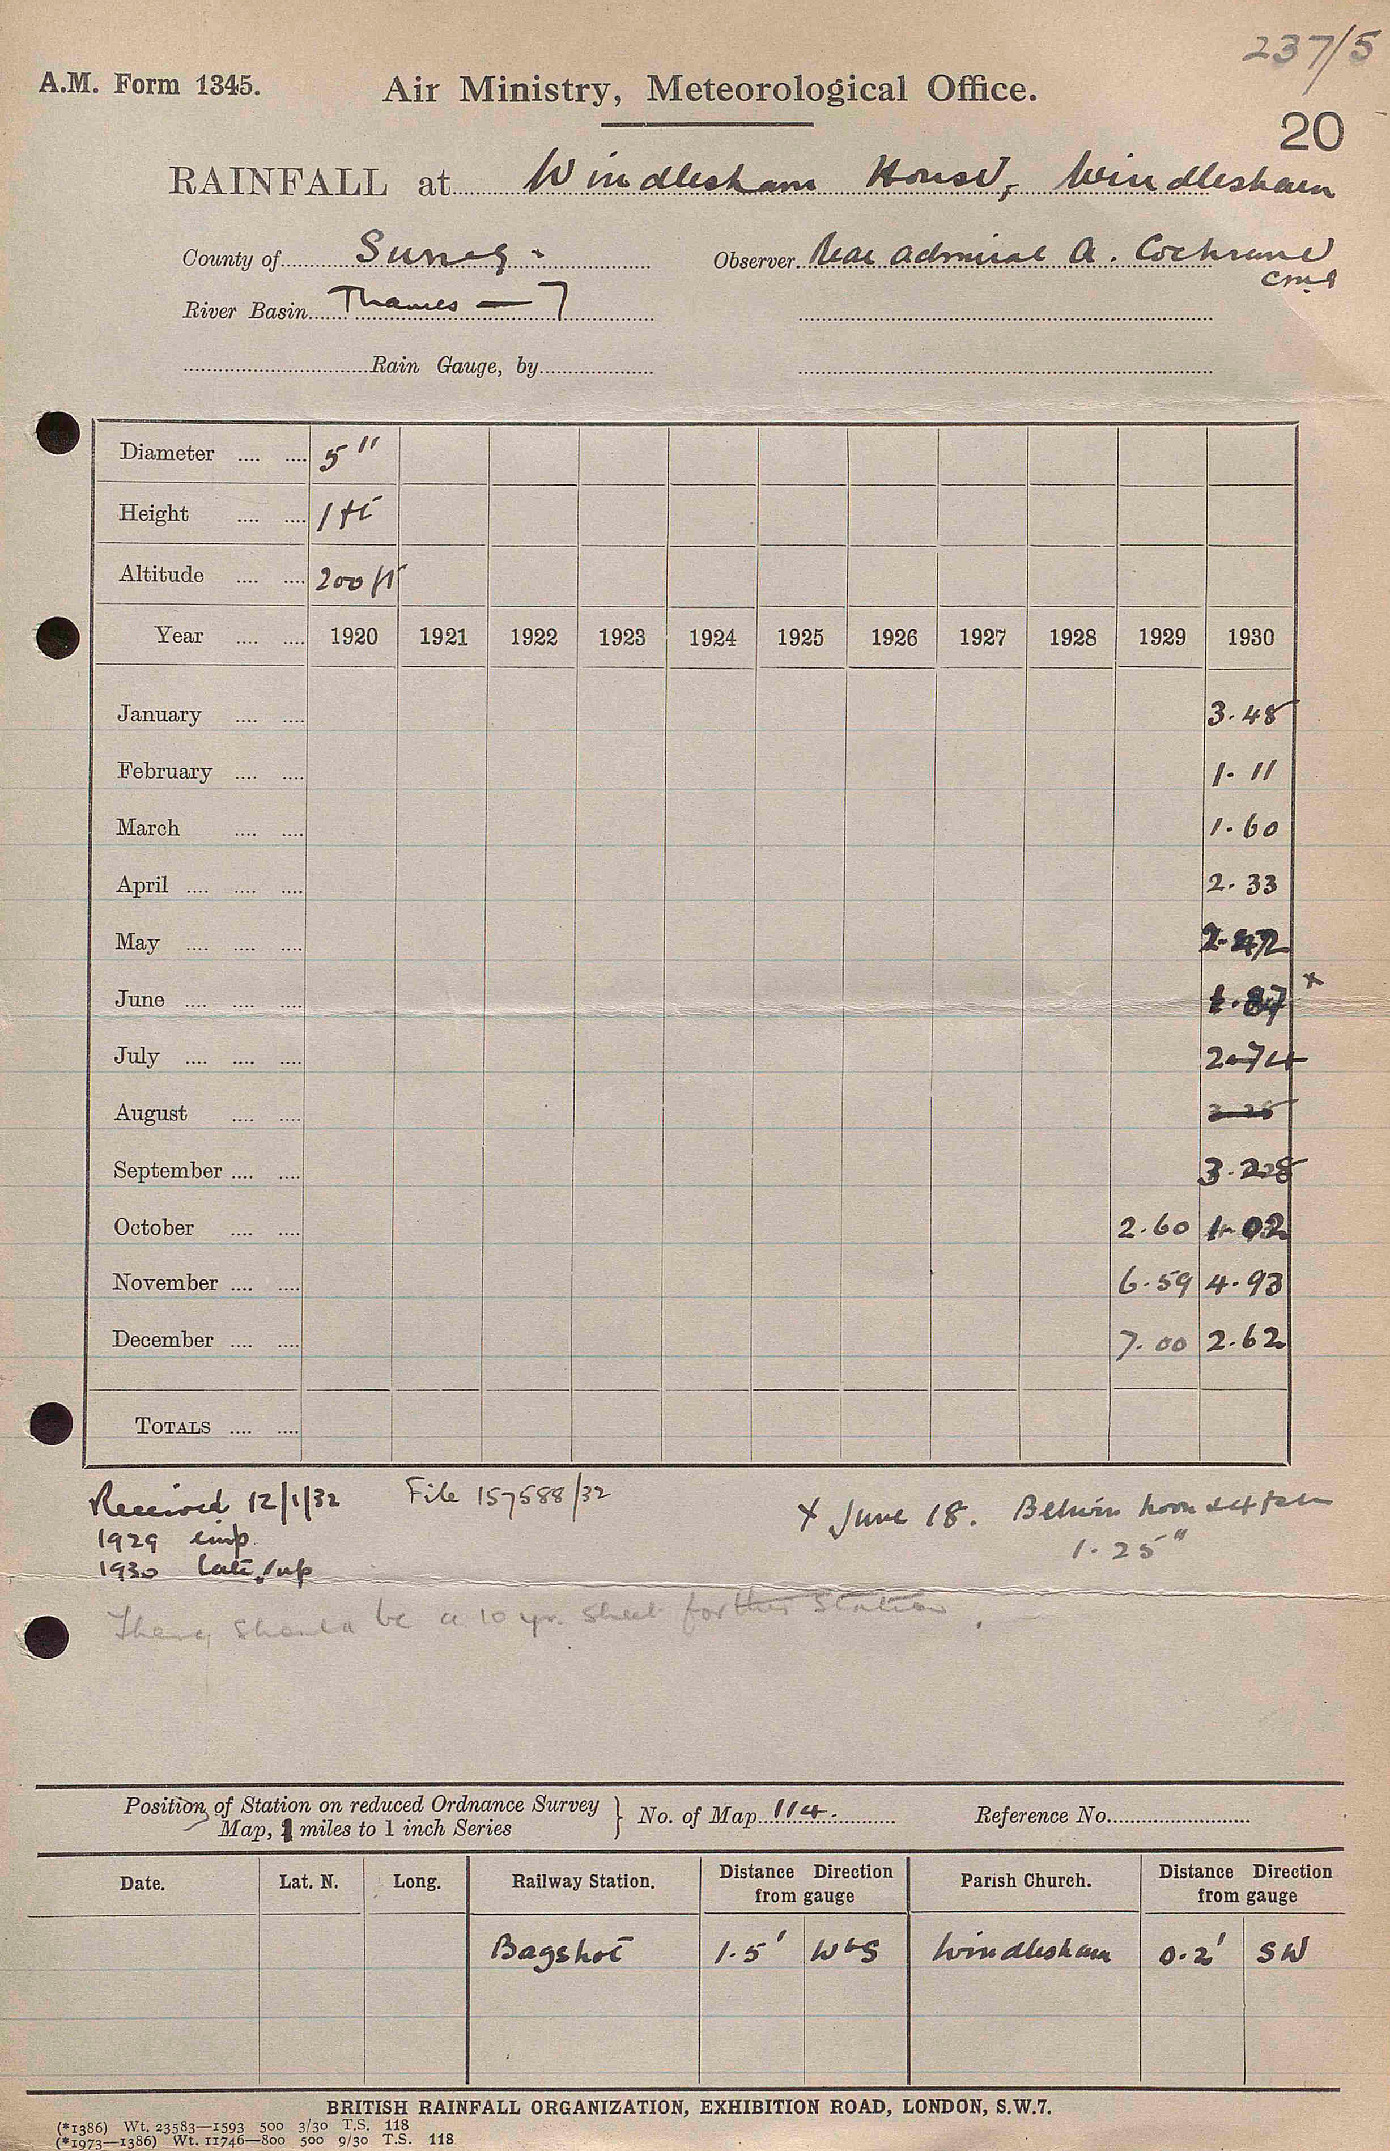 237/5
A.M. Form 1345.
Air Ministry, Meteorological Office.
20
RAINFALL at Windlesham House, Windlesham
County of Surrey
Observer Rear Admiral A. Cochrane
CMG
River Basin Thames — 7
Rain Gauge, by
Diameter 5"
Height 1 ft
Altitude 200 ft
Year 1920 1921 1922 1923 1924 1925 1926 1927 1928 1929 1930
January 3.48
February 1.11
March 1.60
April 2.33
May
June x
July 2.74
August
September
October 2.60 1.02
November 6.59 4.93
December 7.00 2.62
TOTALS
Received 12/1/32 File 157588/32
1929 imp.
1930 late
x June 18. Between noon & 4 pm
1.25"
There should be a 10 yr. sheet for this station.
Position of Station on reduced Ordnance Survey
Map, miles to 1 inch Series
No. of Map 114.
Reference No.
Date. Lat. N. Long. Railway Station. Distance Direction from gauge Parish Church. Distance Direction from gauge
Bagshot 1.5' WbS Windlesham 0.2' SW
BRITISH RAINFALL ORGANIZATION, EXHIBITION ROAD, LONDON, S.W.7.
(*1386) Wt. 23583—1593 500 3/30 T.S. 118
(*1973—1386) Wt. 11746—800 500 9/30 T.S. 118